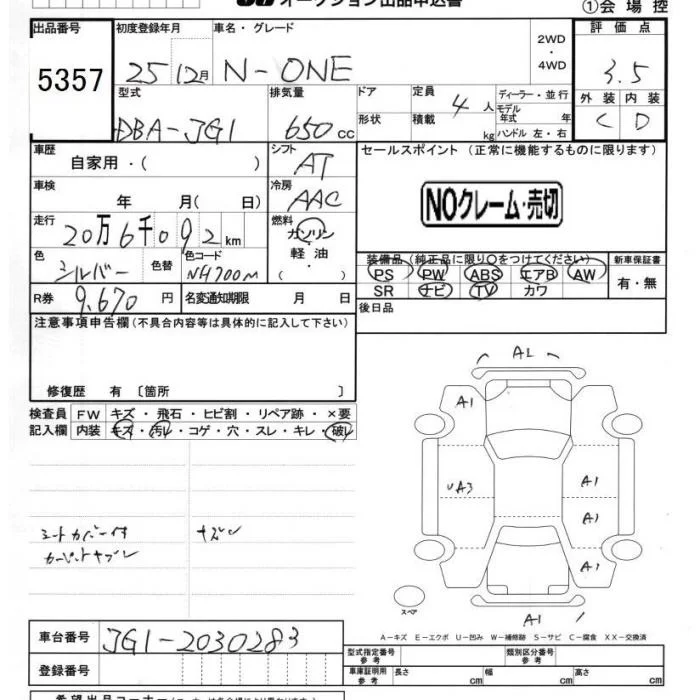 オークション出品申込書
①会場控
出品番号 初度登録年月 車名・グレード 評価点
5357 25 12月 N-ONE 2WD・4WD 3.5
型式 排気量 ドア 定員 ディーラー・並行 外装 内装
DBA-JG1 650cc 4人 モデル年式 年 C D
形状 積載 kg ハンドル 左・右
車歴 シフト セールスポイント (正常に機能するものに限ります)
自家用・( ) AT
車検 冷房
年 月( 日) AAC NOクレーム・売切
走行 燃料
20万6千092km ガソリン
色 色替 色コード 軽油・
シルバー NH700M ( )
装備品 (純正品に限り○をつけてください) 新車保証書
PS PW ABS エアB AW 有・無
SR ナビ TV カワ
R券 9,670円 名変通知期限 月 日 後日品
注意事項申告欄(不具合内容等は具体的に記入して下さい)
修復歴 有〔箇所 〕
検査員 FW キズ・飛石・ヒビ割・リペア跡・×要
記入欄 内装 キズ・汚レ・コゲ・穴・スレ・キレ・破レ
シートカバー付
A1
A1
UA3 A1
A1
A1
A1
スペア
A-キズ E-エクボ U-凹み W-補修跡 S-サビ C-腐食 XX-交換済
車台番号 JG1-2030283
型式指定番号 参考 類別区分番号 参考
登録番号 車庫証明用 参考 長さ cm 幅 cm 高さ cm